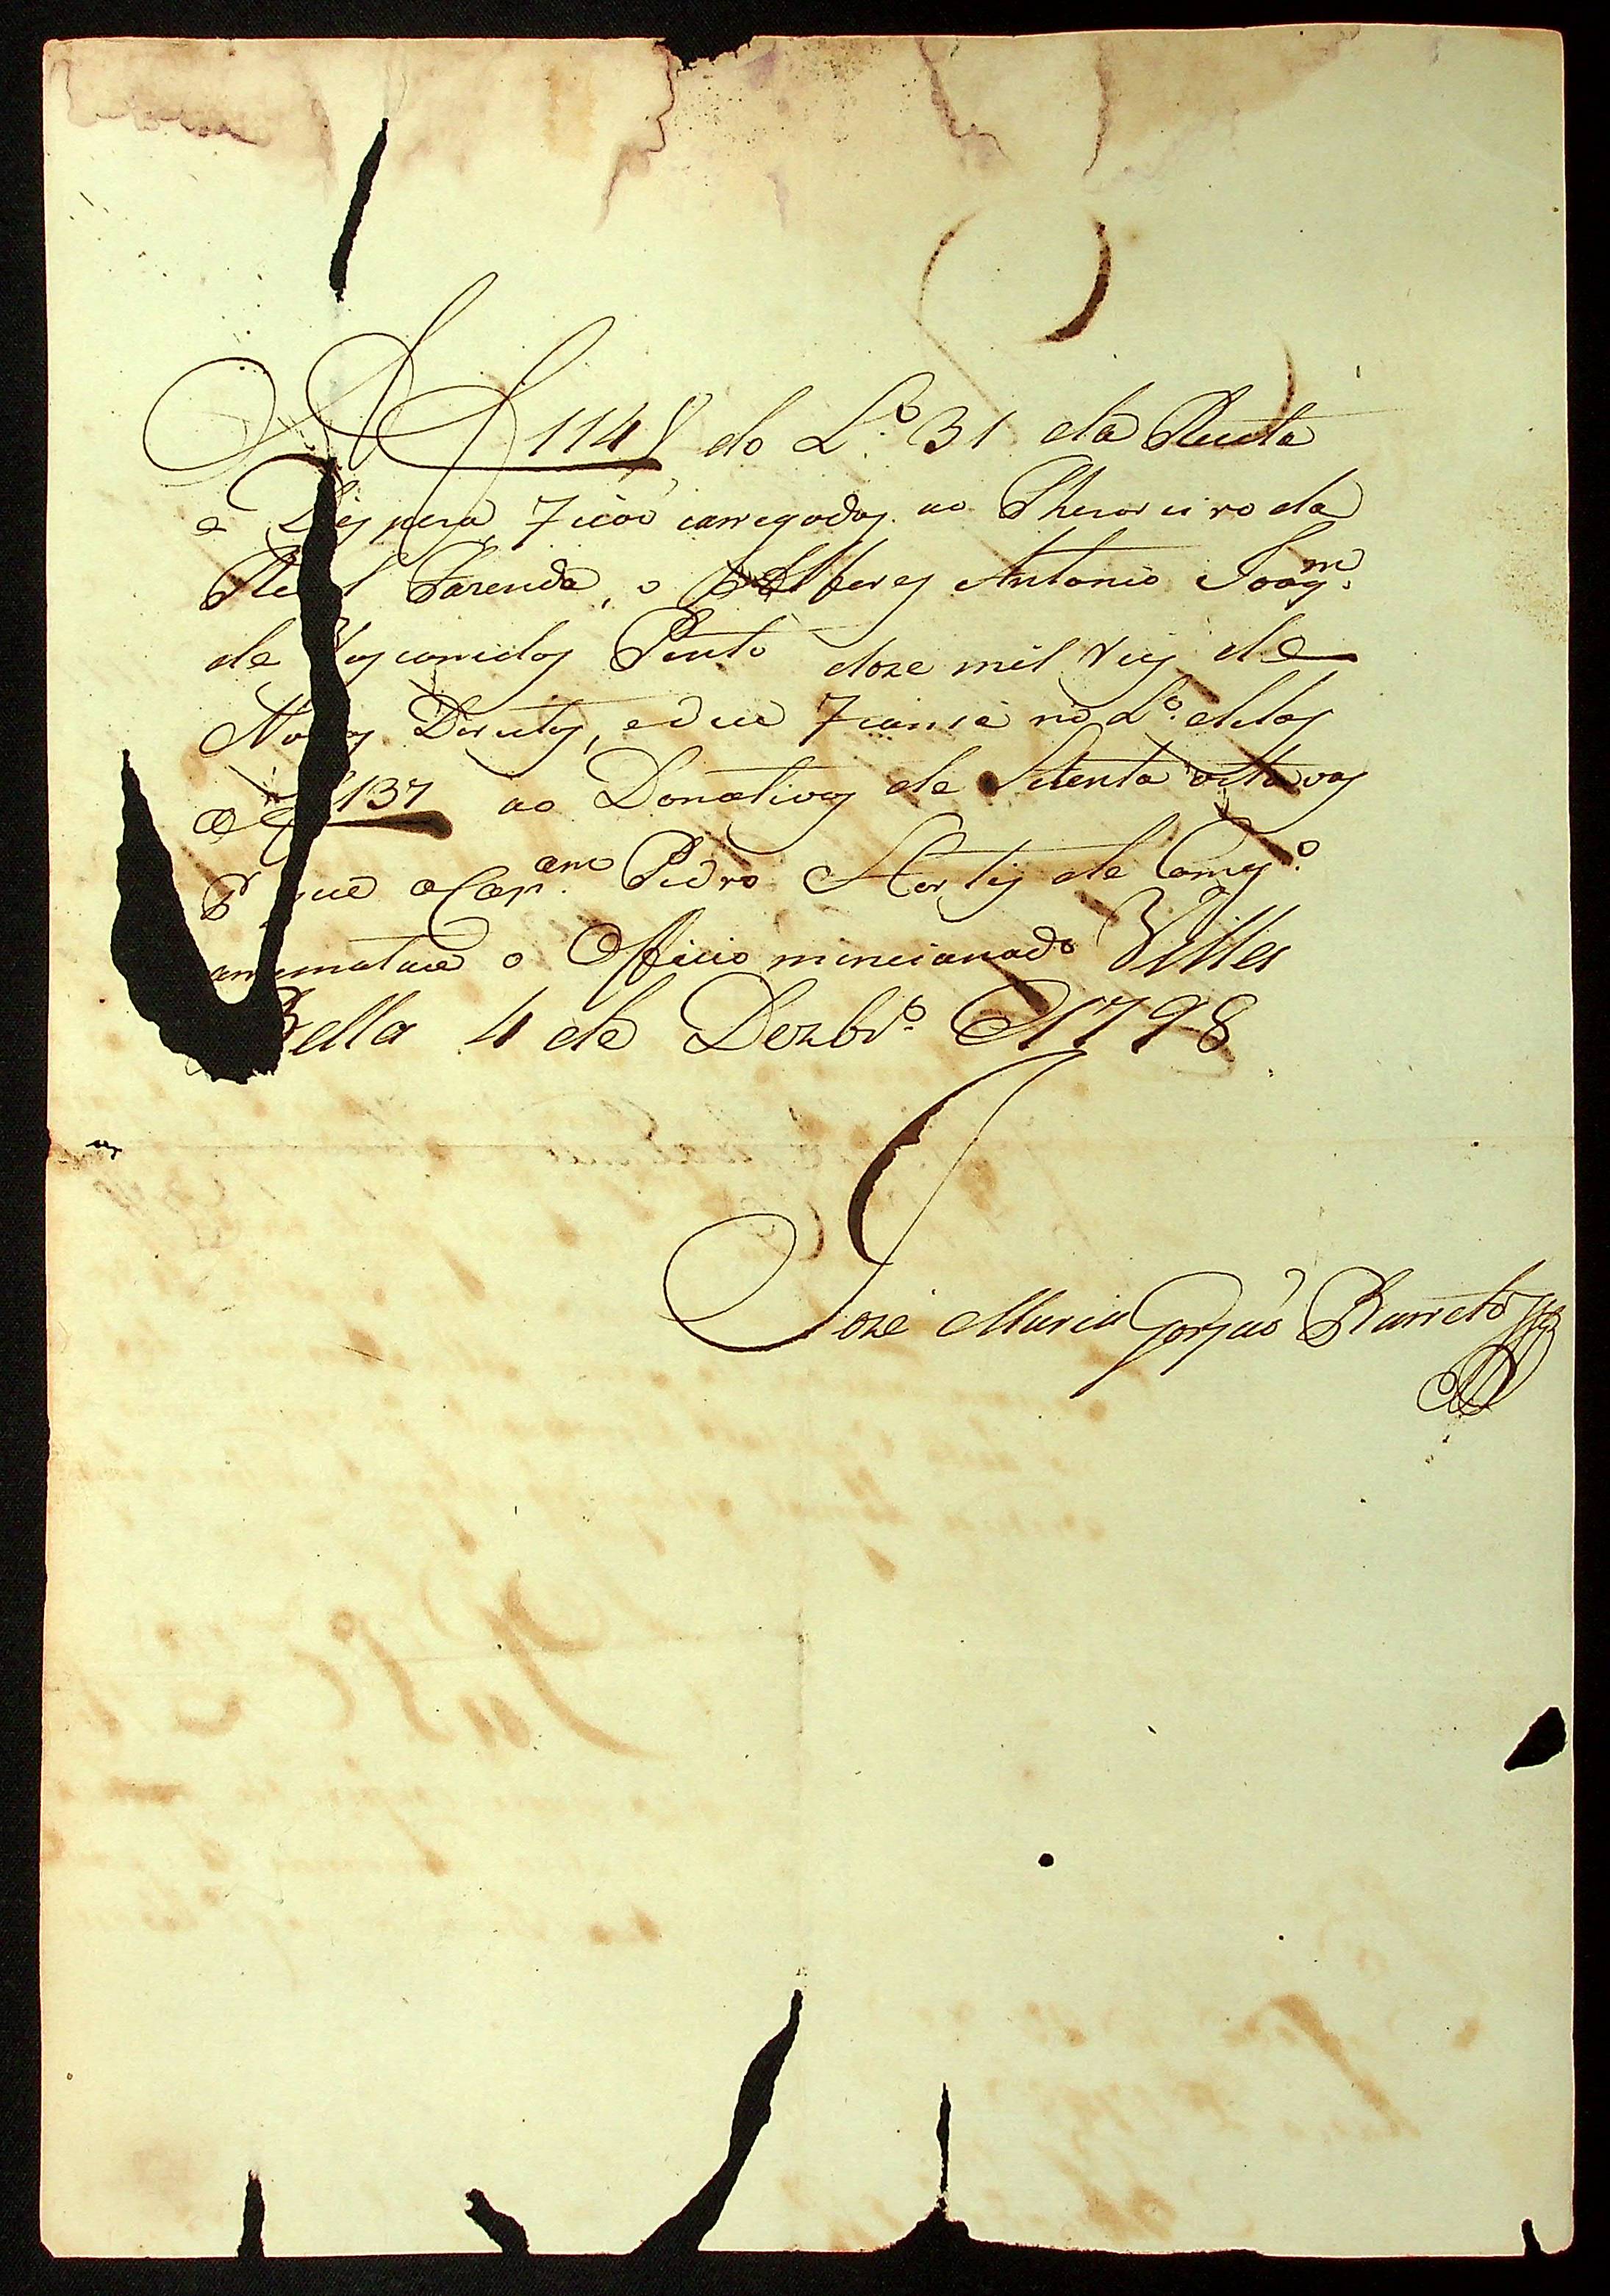 A f 114 V do L.º 31 da Receita
e Despeza ficaõ carregados ao Thezoureiro da
Real Fazenda, o Alferes Antonio Joaq.m
de Vasconcelos Pinto doze mil reis de
Novos Direitos, e deu fiança no L.º delles
a f 137 ao Donativo de Setenta oitavas
P que o Cap.am Pedro Hortis de Camg.º
arrematou o Officio mencionado Villa
Bella 4 de Dezbr.º de 1798
Jozé Maria Gorjaõ Barreto